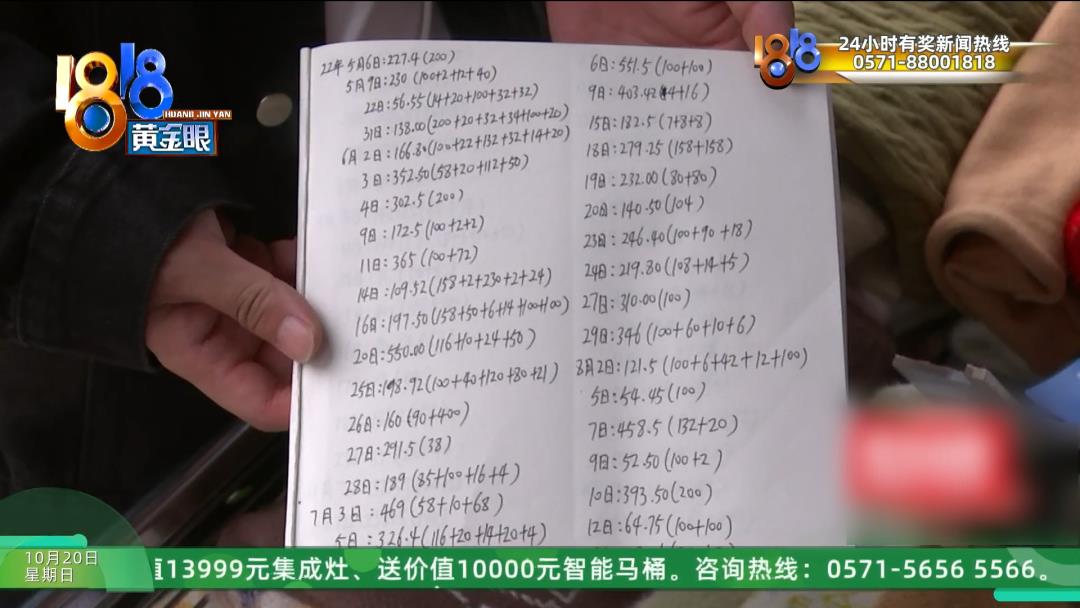 1818
HUANG JIN YAN
黄金眼
1818
24小时有奖新闻热线
0571-88001818
22年5月6日:227.4(200)
5月9日:230(100+2+12+40)
22日:56.55(14+20+100+32+32)
31日:138.00(200+20+32+34+100+20)
6月2日:166.80(100+22+132+32+14+20)
3日:352.50(58+20+112+50)
4日:302.5(200)
9日:172.5(100+2+2)
11日:365(100+72)
14日:109.52(158+2+230+2+24)
16日:197.50(158+50+6+14+100+100)
20日:550.00(116+10+24+50)
25日:198.92(100+40+120+80+21)
26日:160(90+400)
27日:291.5(38)
28日:189(85+100+16+4)
7月3日:469(58+10+68)
5日:326.4(116+20+14+20+4)
6日:551.5(100+100)
9日:403.42(4+16)
15日:182.5(7+8+8)
18日:279.25(158+158)
19日:232.00(80+80)
20日:140.50(104)
23日:246.40(100+90+18)
24日:219.80(108+14+5)
27日:310.00(100)
29日:346(100+60+10+6)
3月2日:121.5(100+6+42+12+100)
5日:54.45(100)
7日:458.5(132+20)
9日:52.50(100+2)
10日:393.50(200)
12日:64.75(100+100)
10月20日
星期日
值13999元集成灶、送价值10000元智能马桶。咨询热线：0571-5656 5566。